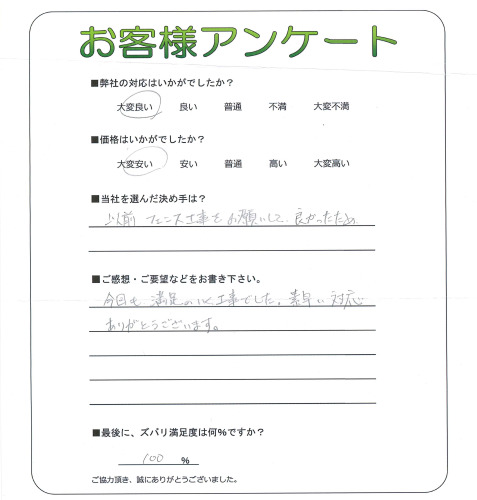 お客様アンケート
■弊社の対応はいかがでしたか？
大変良い 良い 普通 不満 大変不満
■価格はいかがでしたか？
大変安い 安い 普通 高い 大変高い
■当社を選んだ決め手は？
以前 フェンス工事をお願いして、良かったため
■ご感想・ご要望などをお書き下さい。
今回も 満足のいく工事でした。素早い対応
ありがとうございます。
■最後に、ズバリ満足度は何%ですか？
100 %
ご協力頂き、誠にありがとうございました。